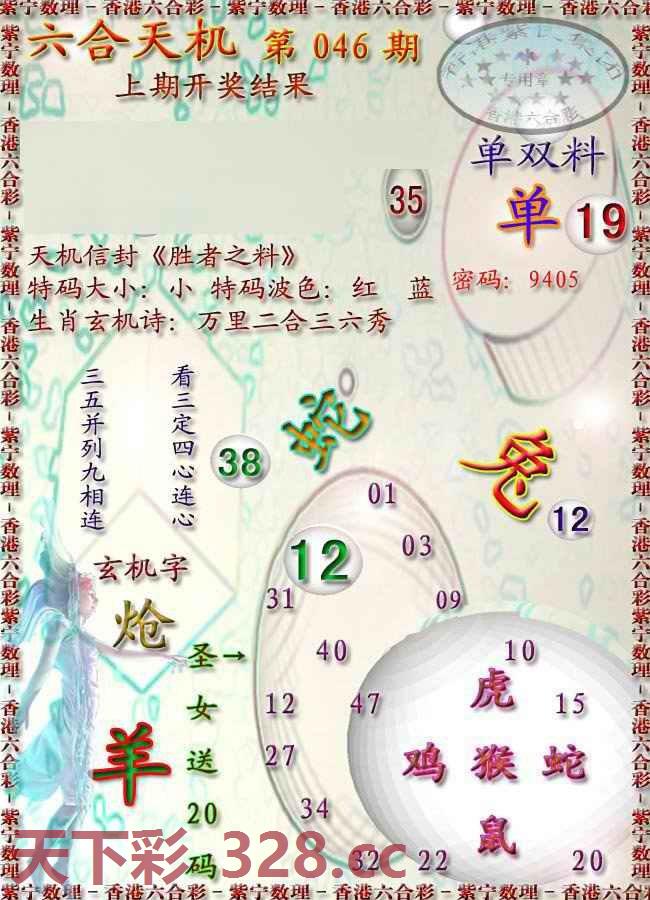 紫宁数理－香港六合彩－紫宁数理－香港六合彩－紫宁数理－香港六合彩
六合天机 第 046 期
上期开奖结果
香港紫氏集团
专用章
香港六合彩
单双料
单 19
35
天机信封《胜者之料》
特码大小：小 特码波色：红 蓝
密码：9405
生肖玄机诗：万里二合三六秀
看三定四心连心
三五并列九相连
蛇
38
兔
12
01
12
03
31
09
玄机字
炝
圣→
女
送
20
码
羊
40
10
虎
12
47
15
鸡 猴 蛇
27
鼠
34
32
22
20
天下彩.328.cc
紫宁数理－香港六合彩－紫宁数理－香港六合彩－紫宁数理－香港六合彩